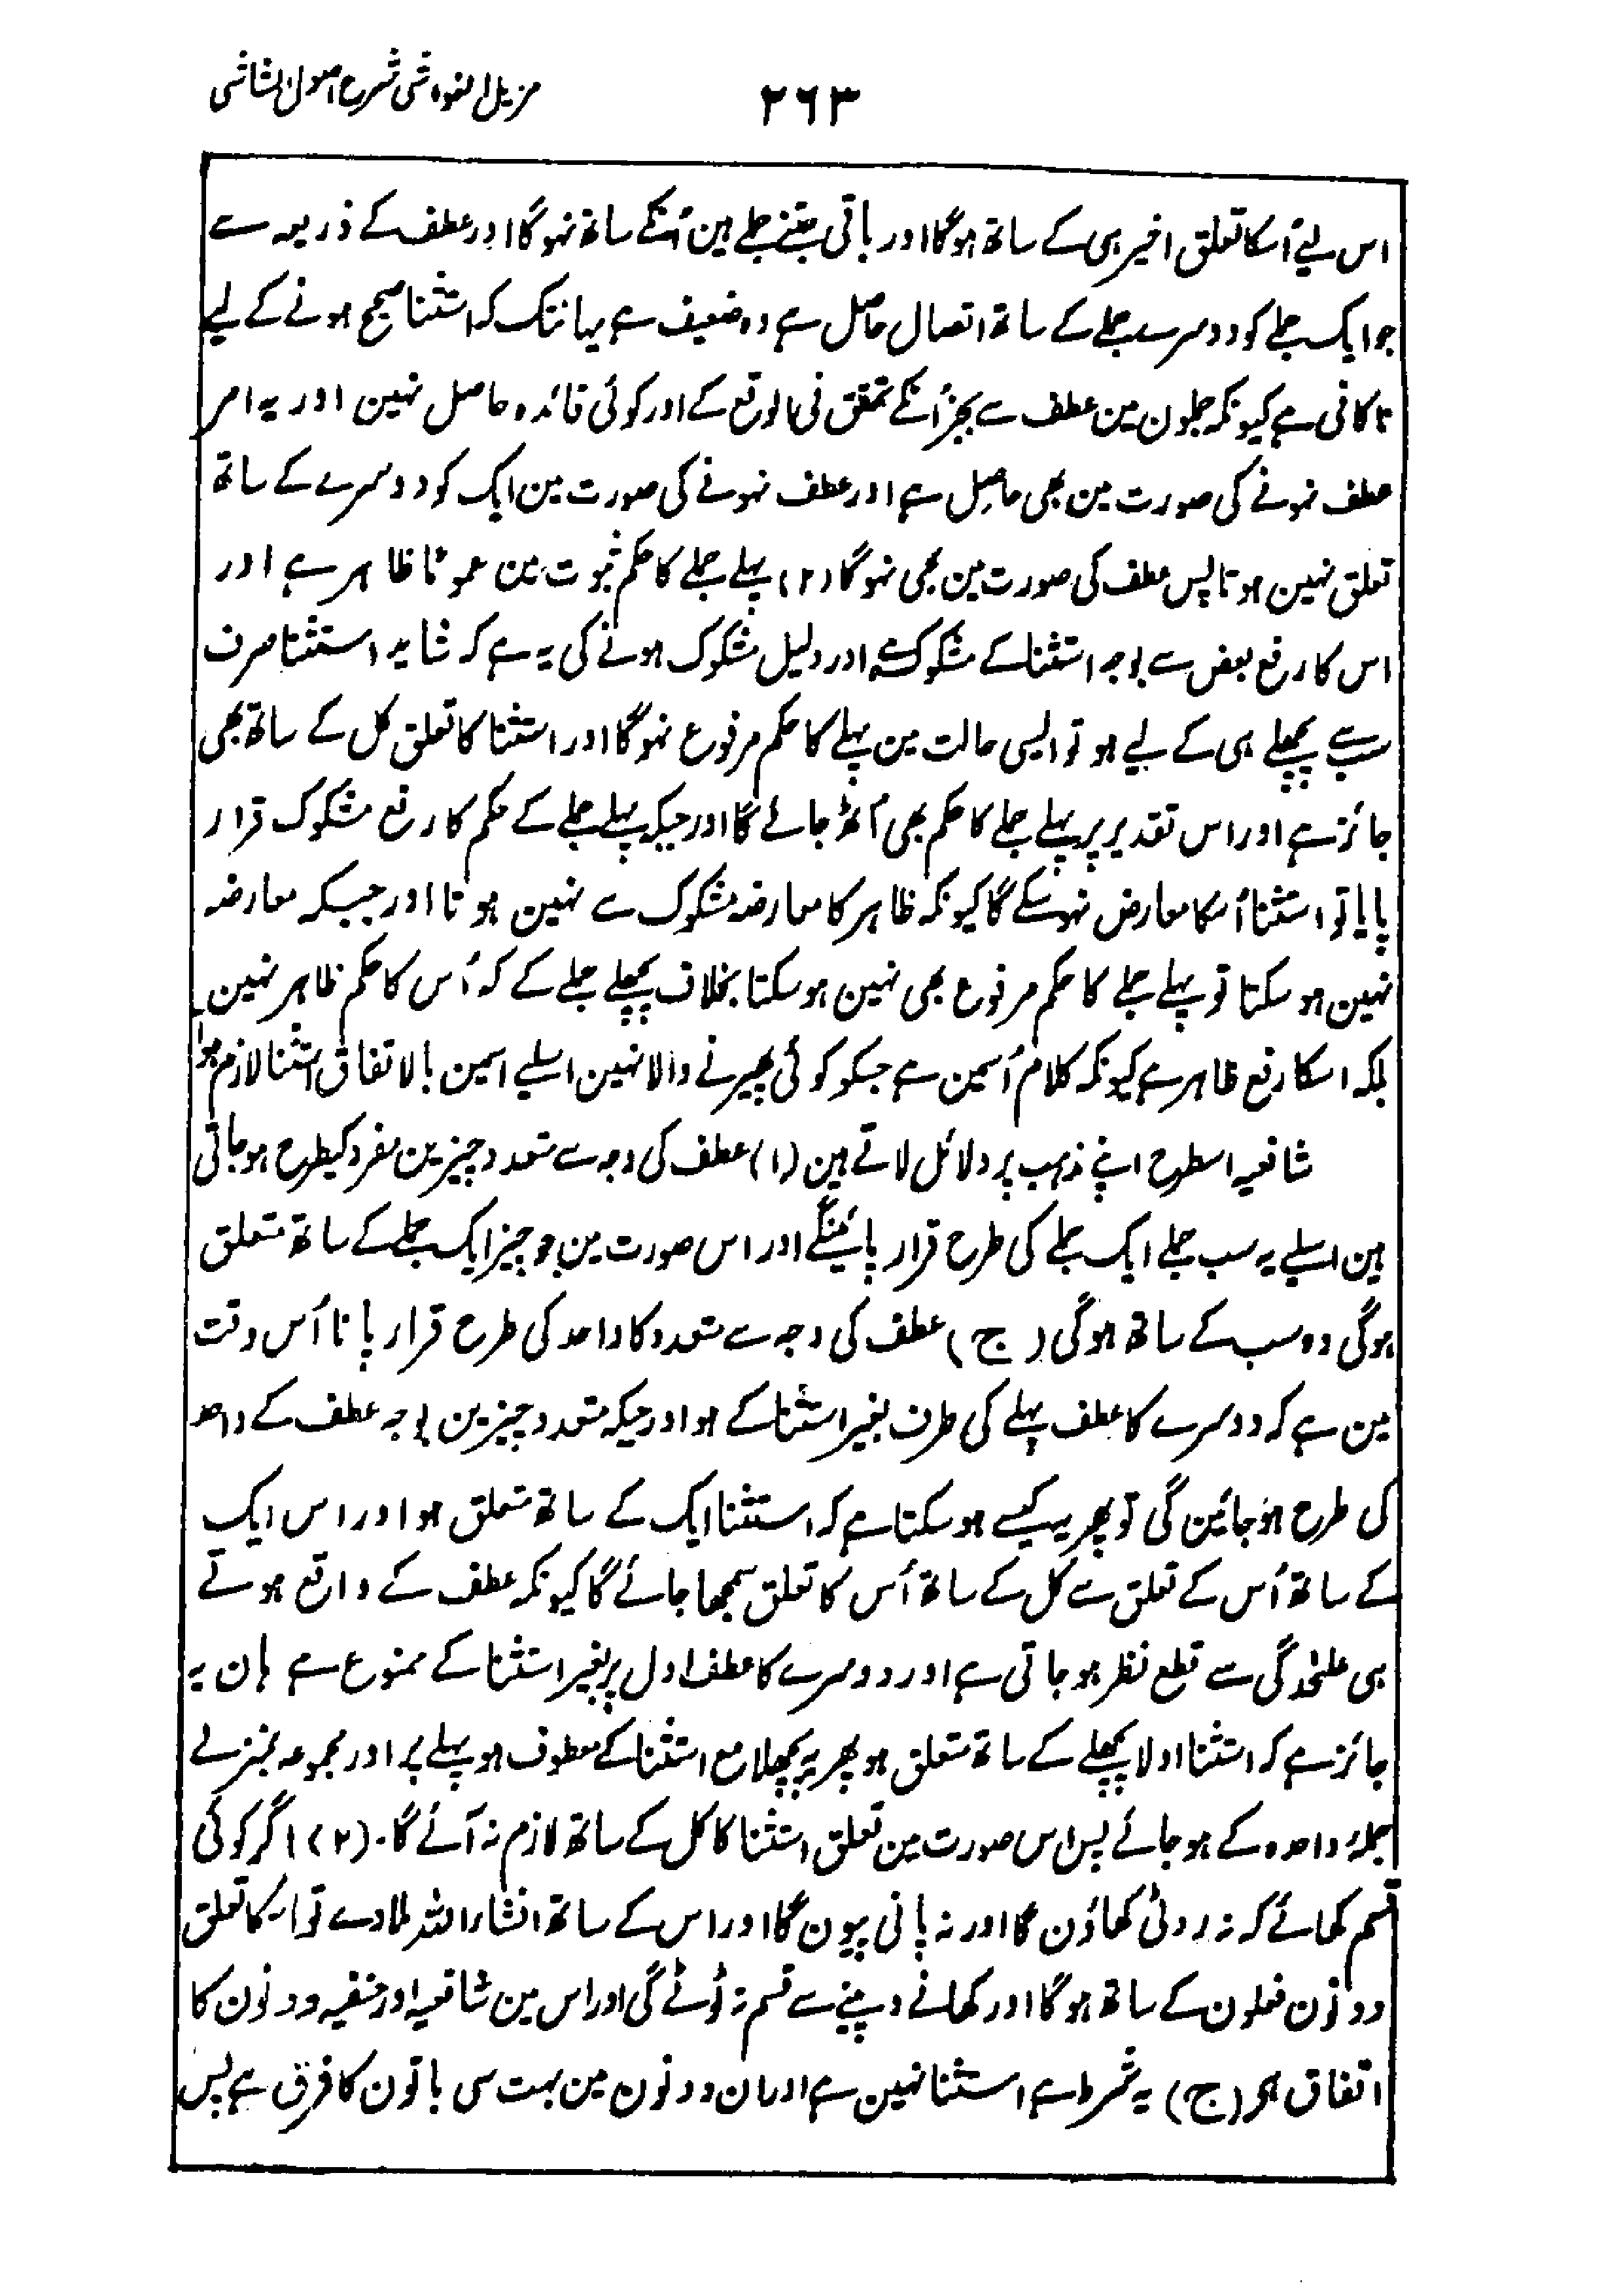 مزیل الغواشی شرح اصول الشاشی
۲۶۳
اس لیے اُسکا تعلق اخیر ہی کے ساتھ ہوگا اور باقی جتنے جملے ہین اُنکے ساتھ نہوگا اور عطف کے ذریعہ سے
جو ایک جملے کو دوسرے جملے کے ساتھ اتصال حاصل ہے وہ ضعیف ہے یہانتک کہ استثنا صحیح ہونے کے لیے
ناکافی ہے کیونکہ جملون مین عطف سے بجز اُنکے تحقق فی الواقع کے اور کوئی فائدہ حاصل نہین اور یہ امر
عطف نہونے کی صورت مین بھی حاصل ہے اور عطف نہونے کی صورت مین ایک کو دوسرے کے ساتھ
تعلق نہین ہوتا پس عطف کی صورت مین بھی نہوگا (۲) پہلے جملے کا حکم ثبوت مین عموماً ظاہر ہے اور
اس کا رفع بعض سے بوجہ استثنا کے مشکوک ہے اور دلیل مشکوک ہونے کی یہ ہے کہ شاید استثنا صرف
سب سے پچھلے ہی کے لیے ہو تو ایسی حالت مین پہلے کا حکم مرفوع نہوگا اور استثنا کا تعلق کل کے ساتھ بھی
جائز ہے اور اس تقدیر پر پہلے جملے کا حکم بھی اُٹھ جائے گا اور جبکہ پہلے جملے کے حکم کا رفع مشکوک قرار
پایا تو استثنا اُسکا معارض نہوسکے گا کیونکہ ظاہر کا معارضہ مشکوک سے نہین ہوتا اور جبکہ معارضہ
نہین ہو سکتا تو پہلے جملے کا حکم مرفوع بھی نہین ہو سکتا بخلاف پچھلے جملے کے کہ اُس کا حکم ظاہر نہین
بلکہ اسکا رفع ظاہر ہے کیونکہ کلام اُسمین ہے جسکو کوئی پھیرنے والا نہین اسلیے اسمین بالاتفاق استثنا لازم ہوا
شافعیہ اسطرح اپنے مذہب پر دلائل لاتے ہین (۱) عطف کی وجہ سے متعدد چیزین مفرد کیطرح ہو جاتی
ہین اسلیے یہ سب جملے ایک جملے کی طرح قرار پائینگے اور اس صورت مین جو چیز ایک جملے کے ساتھ متعلق
ہوگی وہ سب کے ساتھ ہوگی (ج) عطف کی وجہ سے متعدد کا واحد کی طرح قرار پانا اُس وقت
مین ہے کہ دوسرے کا عطف پہلے کی طرف بغیر استثنا کے ہو اور جبکہ متعدد چیزین بوجہ عطف کے واحد
کی طرح ہو جائین گی تو پھر یہ کیسے ہو سکتا ہے کہ استثنا ایک کے ساتھ متعلق ہو اور اس ایک
کے ساتھ اُس کے تعلق سے کل کے ساتھ اُس کا تعلق سمجھا جائے گا کیونکہ عطف کے واقع ہوتے
ہی علٰحدگی سے قطع نظر ہو جاتی ہے اور دوسرے کا عطف اول پر بغیر استثنا کے ممنوع ہے ہان یہ
جائز ہے کہ استثنا اولا پچھلے کے ساتھ متعلق ہو پھر یہ پچھلا مع استثنا کے معطوف ہو پہلے پر اور مجموعہ بمنزلے
جملۂ واحدہ کے ہو جائے پس اس صورت مین تعلق استثنا کا کل کے ساتھ لازم نہ آئے گا۔ (۲) اگر کوئی
قسم کھائے کہ نہ روٹی کھاؤن گا اور نہ پانی پیون گا اور اس کے ساتھ انشاء اللہ ملا دے تو اسکا تعلق
دونون فعلون کے ساتھ ہوگا اور کھانے و پینے سے قسم نہ ٹوٹے گی اور اس مین شافعیہ اور حنفیہ دونون کا
اتفاق ہی (ج) یہ شرط ہے استثنا نہین ہے اور ان دونون مین بہت سی باتون کا فرق ہے پس